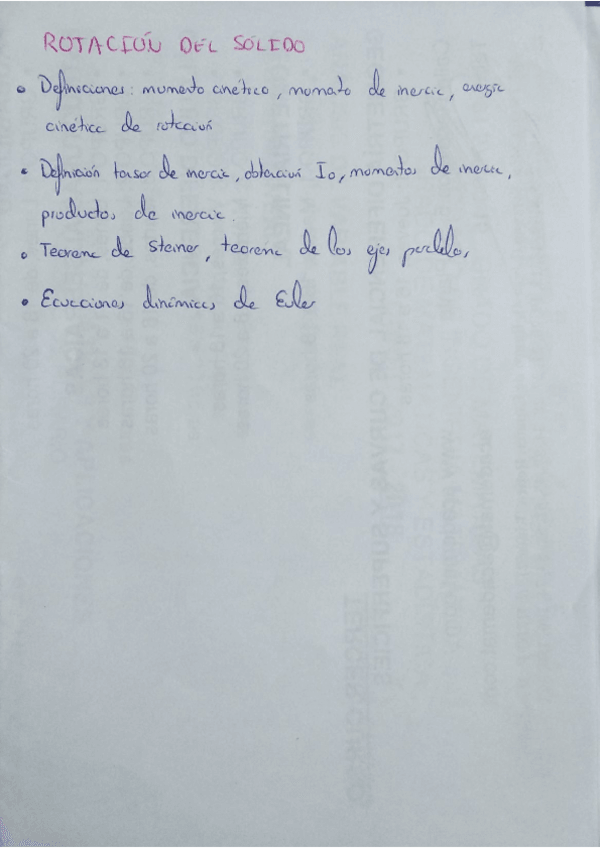 ROTACIÓN DEL SÓLIDO
• Definiciones: momento cinético, momento de inercia, energía
cinética de rotación
• Definición tensor de inercia, obtención Io, momentos de inercia,
productos de inercia.
• Teorema de Steiner, teorema de los ejes paralelos,
• Ecuaciones dinámicas de Euler